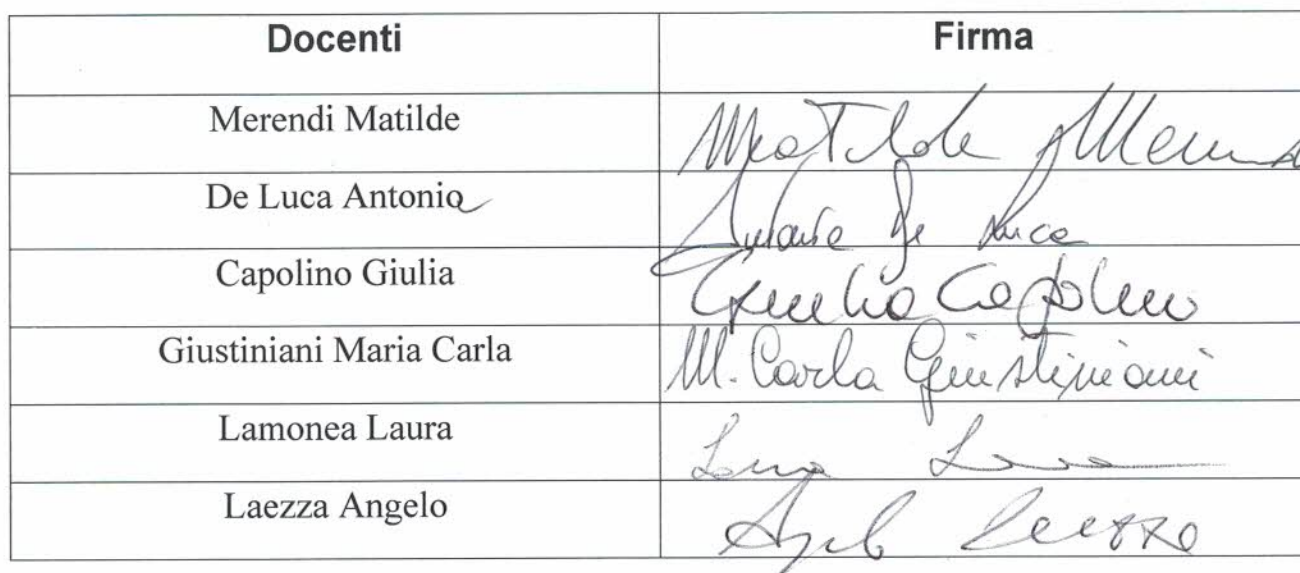 Docenti Firma
Merendi Matilde Matilde
De Luca Antonio Antonio De Luca
Capolino Giulia Giulia Capolino
Giustiniani Maria Carla M. Carla Giustiniani
Lamonea Laura
Laezza Angelo Angelo Laezza